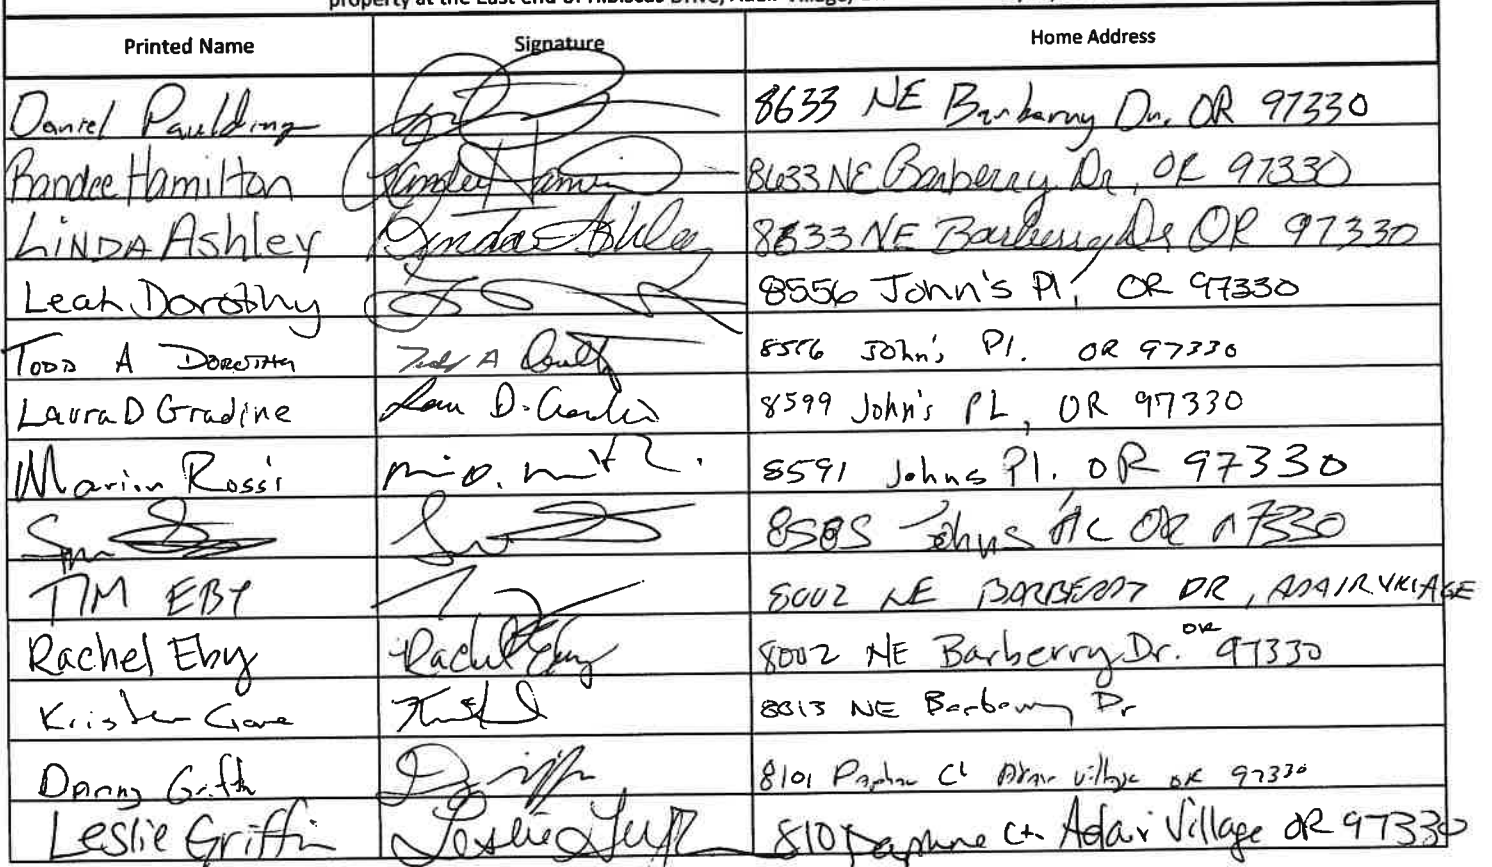 property at the East end of Hibiscus Drive, Adair Village,
Printed Name Signature Home Address
Daniel Paulding 8633 NE Barberry Dr. OR 97330
Randee Hamilton Randee Hamilton 8633 NE Barberry Dr, OR 97330
LINDA Ashley Lynda Ashley 8633 NE Barberry Dr OR 97330
Leah Dorothy 8556 John's Pl, OR 97330
TODD A DOROTHY Todd A 8556 John's Pl. OR 97330
Laura D Gradine D. 8599 John's PL, OR 97330
Marion Rossi 8591 Johns Pl. OR 97330
8585 Johns OR 97330
TIM EBY 8002 NE BARBERRY DR, ADAIR VILLAGE
Rachel Eby Rachel Eby 8002 NE Barberry Dr. OR 97330
Kristen NE Barberry Dr
Danny Griffin 8101 Daphne Ct Adair Village OR 97330
Leslie Griffin Leslie Griffin 8101 Daphne Ct. Adair Village OR 97330